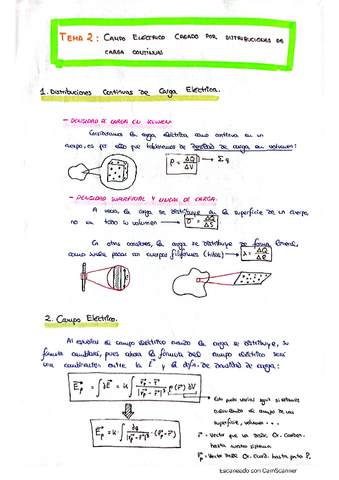 TEMA 2: CAMPO ELÉCTRICO CREADO POR DISTRIBUCIONES DE
CARGA CONTINUAS
1. Distribuciones Continuas de Carga Eléctrica.
- DENSIDAD DE CARGA EN VOLUMEN
Consideramos la carga eléctrica como continua en un
cuerpo, es por ello que hablaremos de densidad de carga en volumen:
ρ = ΔQ/ΔV → Σq
- DENSIDAD SUPERFICIAL Y LINEAL DE CARGA.
A veces, la carga se distribuye en la superficie de un cuerpo
no en todo su volumen → σ = ΔQ/ΔS
En otras ocasiones, la carga se distribuye de forma lineal,
como suele pasar con cuerpos filiformes (hilos) → λ = ΔQ/Δl
2. Campo Eléctrico.
Al estudiar el campo eléctrico cuando la carga se distribuye, su
fórmula cambiará, pues ahora la fórmula del campo eléctrico será
una combinación entre la E y la de densidad de carga:
E_p = ∫dE = K∫ (r_p - r)/|r_p - r|³ ρ(r) dV
Esto puede variar según si estamos
calculando el campo de una
superficie, volumen...
E_p = K·∫ dq/|r_p - r|³ ·(r_p - r)
r = Vector que va desde Or. Coorden.
hasta nuestro sistema
r_p = Vector desde Or. Coord. hasta punto P.
Escaneado con CamScanner